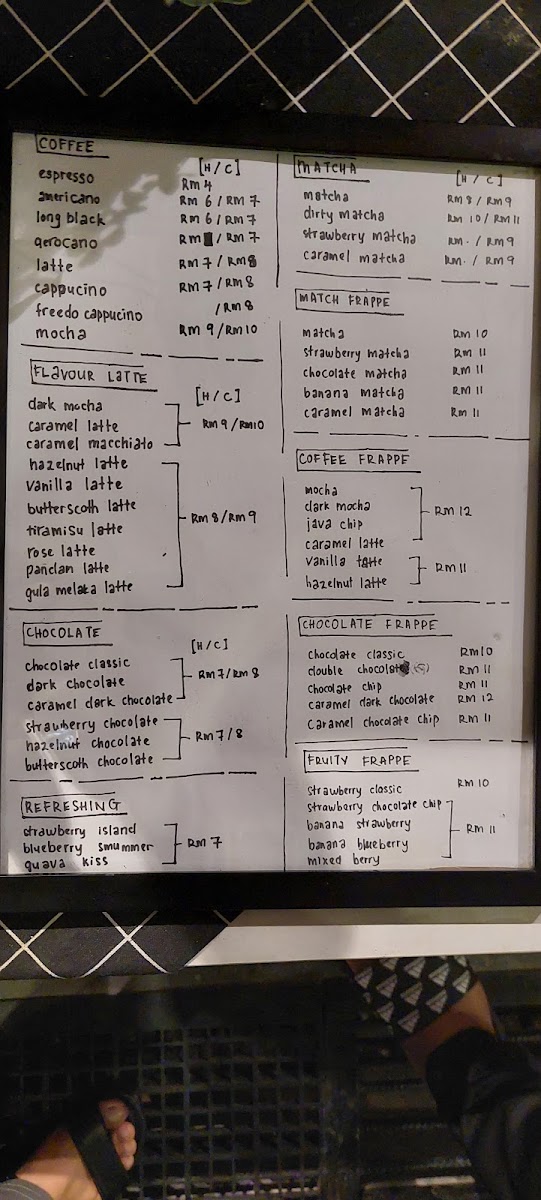 COFFEE
[H/C]
espresso RM 4
americano RM 6 / RM 7
long black RM 6 / RM 7
aerocano RM / RM 7
latte RM 7 / RM 8
cappucino RM 7 / RM 8
freedo cappucino / RM 8
mocha RM 9 / RM 10
FLAVOUR LATTE
[H/C]
dark mocha
caramel latte RM 9 / RM 10
caramel macchiato
hazelnut latte
vanilla latte
butterscoth latte
tiramisu latte RM 8 / RM 9
rose latte
pandan latte
gula melaka latte
CHOCOLATE
[H/C]
chocolate classic
dark chocolate RM 7 / RM 8
caramel dark chocolate
strawberry chocolate
hazelnut chocolate RM 7 / 8
butterscoth chocolate
REFRESHING
strawberry island
blueberry smummer RM 7
guava kiss
MATCHA
[H/C]
matcha RM 8 / RM 9
dirty matcha RM 10 / RM 11
strawberry matcha RM · / RM 9
caramel matcha RM · / RM 9
MATCH FRAPPE
matcha RM 10
strawberry matcha RM 11
chocolate matcha RM 11
banana matcha RM 11
caramel matcha RM 11
COFFEE FRAPPE
mocha
dark mocha RM 12
java chip
caramel latte
vanilla latte RM 11
hazelnut latte
CHOCOLATE FRAPPE
chocolate classic RM 10
double chocolate RM 11
chocolate chip RM 11
caramel dark chocolate RM 12
caramel chocolate chip RM 11
FRUITY FRAPPE
strawberry classic RM 10
strawberry chocolate chip
banana strawberry RM 11
banana blueberry
mixed berry